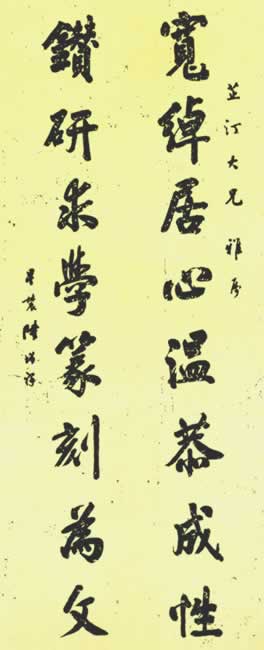 芷汀大兄雅屬
寬綽居心溫恭成性
鑽研求學篆刻為文
星農陸增祥